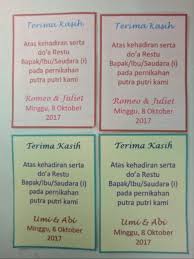 Terima Kasih
Atas kehadiran serta
do'a Restu
Bapak/Ibu/Saudara (i)
pada pernikahan
putra putri kami
Romeo & Juliet
Minggu, 8 Oktober
2017
Terima Kasih
Atas kehadiran serta
do'a Restu
Bapak/Ibu/Saudara (i)
pada pernikahan
putra putri kami
Romeo & Juliet
Minggu, 8 Oktober
2017
Terima Kasih
Atas kehadiran serta
do'a Restu
Bapak/Ibu/Saudara (i)
pada pernikahan
putra putri kami
Umi & Abi
Minggu, 6 Oktober
2017
Terima Kasih
Atas kehadiran serta
do'a Restu
Bapak/Ibu/Saudara (i)
pada pernikahan
putra putri kami
Umi & Abi
Minggu, 6 Oktober
2017